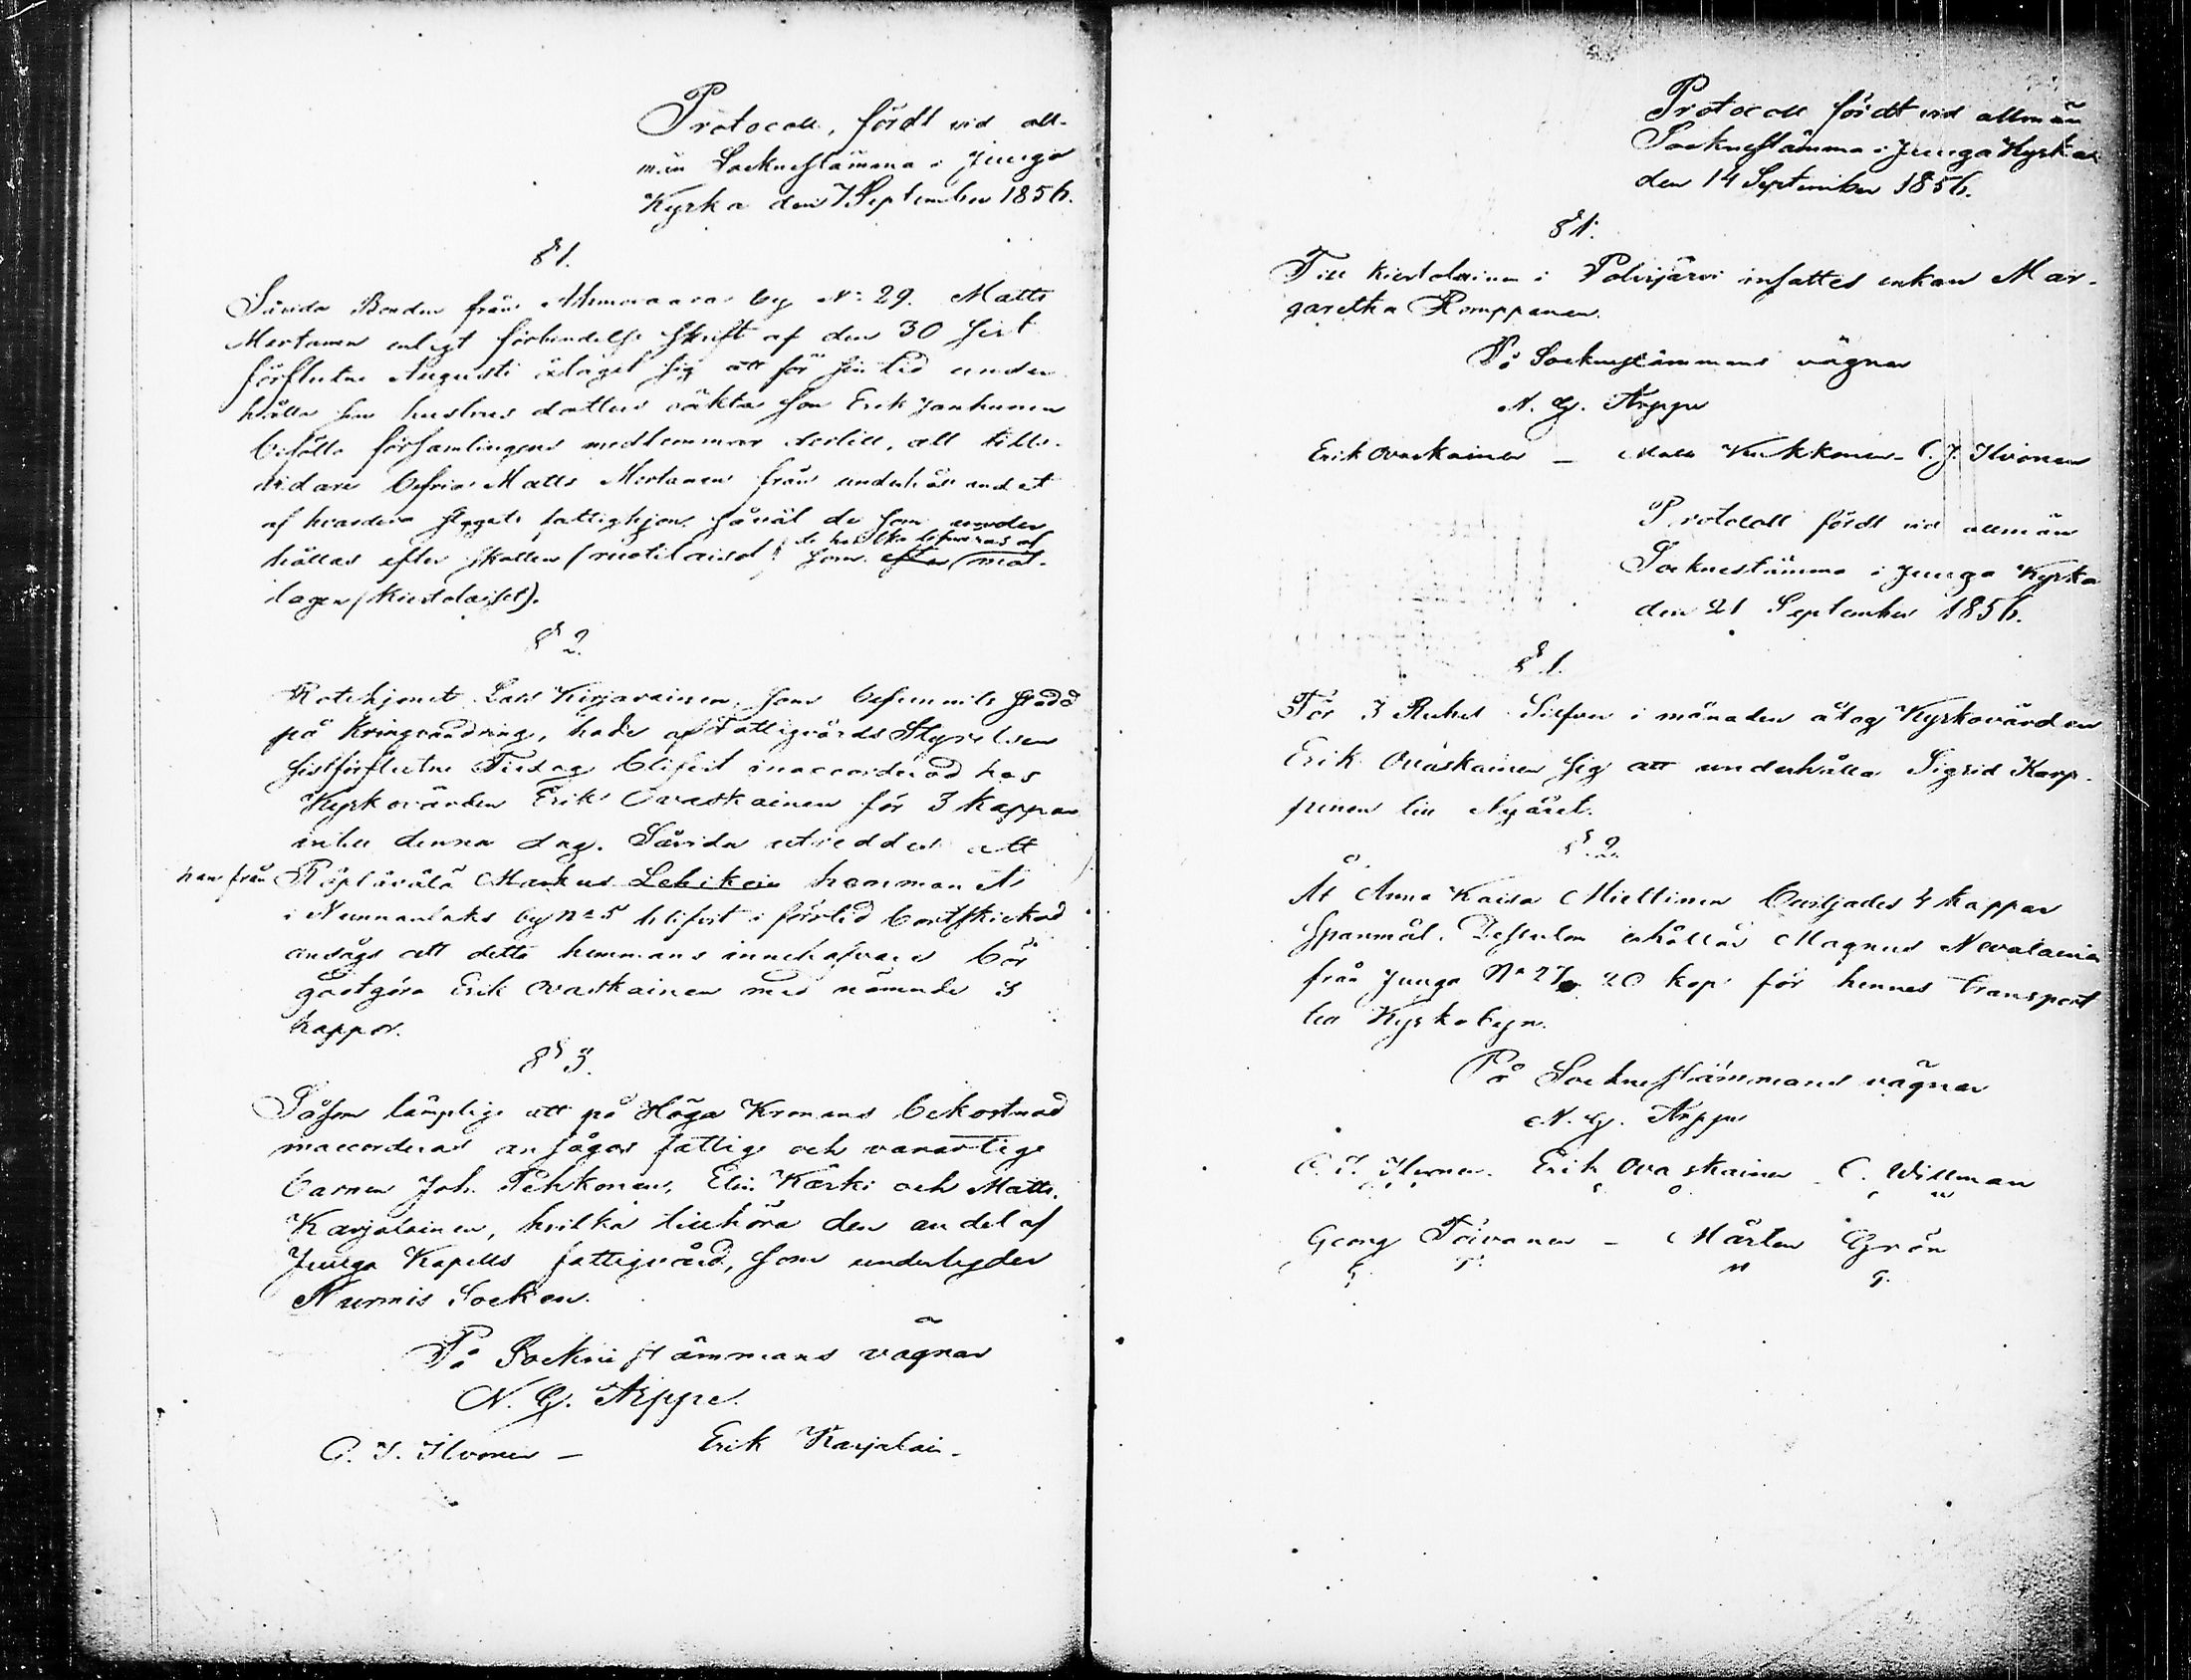 Protocoll, fördt vid all-
män Socknestämma i Juuga
Kyrka den 7 September 1856.
§ 1.
Såvida Bonden från Ahmovaara by No 29. Matts
Mertanen enligt förbindelse skrift af den 30 sist
förflutne Augusti åtagit sig att för sin tid under
hålla sin hustrus dotters oäkta son Erik Janhunen
biföllo församlingens medlemmar dertill, att tills-
vidare befria Matts Mertanen från underhållandet
af hvardera slagets fattighjon, såväl de som under
hållas efter skatten (ruotilaiset) som efter de hvilka lifnäras af mat-
lagen (kiertolaiset).
§ 2.
Rotehjonet Lars Kirjavainen, som befunnits stadd
på kringvandring, hade af Fattigvårds Styrelsen
sistförflutne Tisdag blifvit inaccorderad hos
Kyrkovärden Erik Ovaskainen för 3 kappar
intill denna dag. Såvida utreddes att
han från Markus Lehikoin hemman
i Nunnanlaks by No 5 blifvit i förtid bortskickad
ansågs att detta hemmans innehafvare bör
godtgöra Erik Ovaskainen med nämnde 3
kappor.
§ 3.
Såsom lämplige att på Höga Kronans bekostnad
inaccorderas ansågos fattige och vanartige
barnen Joh. Pehkonen, Elin Kärki och Matts
Karjalainen, hvilka tillhöra den andel af
Juuga Kapells fattigvård, som underlyder
Nurmis Socken.
På Sockne stämmans vägnar
N. G. Arppe.
C. J. Ilvonen – Erik Karjalai-
Protocoll fördt vid allmän
Sockneständma i Juuga Kyrka
den 14 September 1856.
§ 1.
Till kiertolainen i Polvijärvi insattes enkan Mar-
garetha Romppanen.
På Sockenstämmans vägnar
N. G. Arppe
Erik Ovaskainen – Matts Kukkonen – C. J. Ilvonen
Protocoll fördt vid allmän
Socknestämma i Juuga Kyrka
den 21 September 1856.
§ 1.
För 3 Rubel Silfver i månaden åtog Kyrkovärden
Erik Ovaskainen sig att underhålla Sigrid Karp-
pinen till Nyåret.
§ 2.
Åt Anna Kaisa Miettinen beviljades 4 kappar
Spanmål. Dessutom erhåller Magnus Nevalainen
från Juuga No 27 20 kop för hennes transport
till Kyrkobyn.
På Sockne stämmans vägnar
N. G. Arppe
C. J. Ilvonen. Erik Ovaskainen C. Willman
Georg Toivanen – Mårten Grön